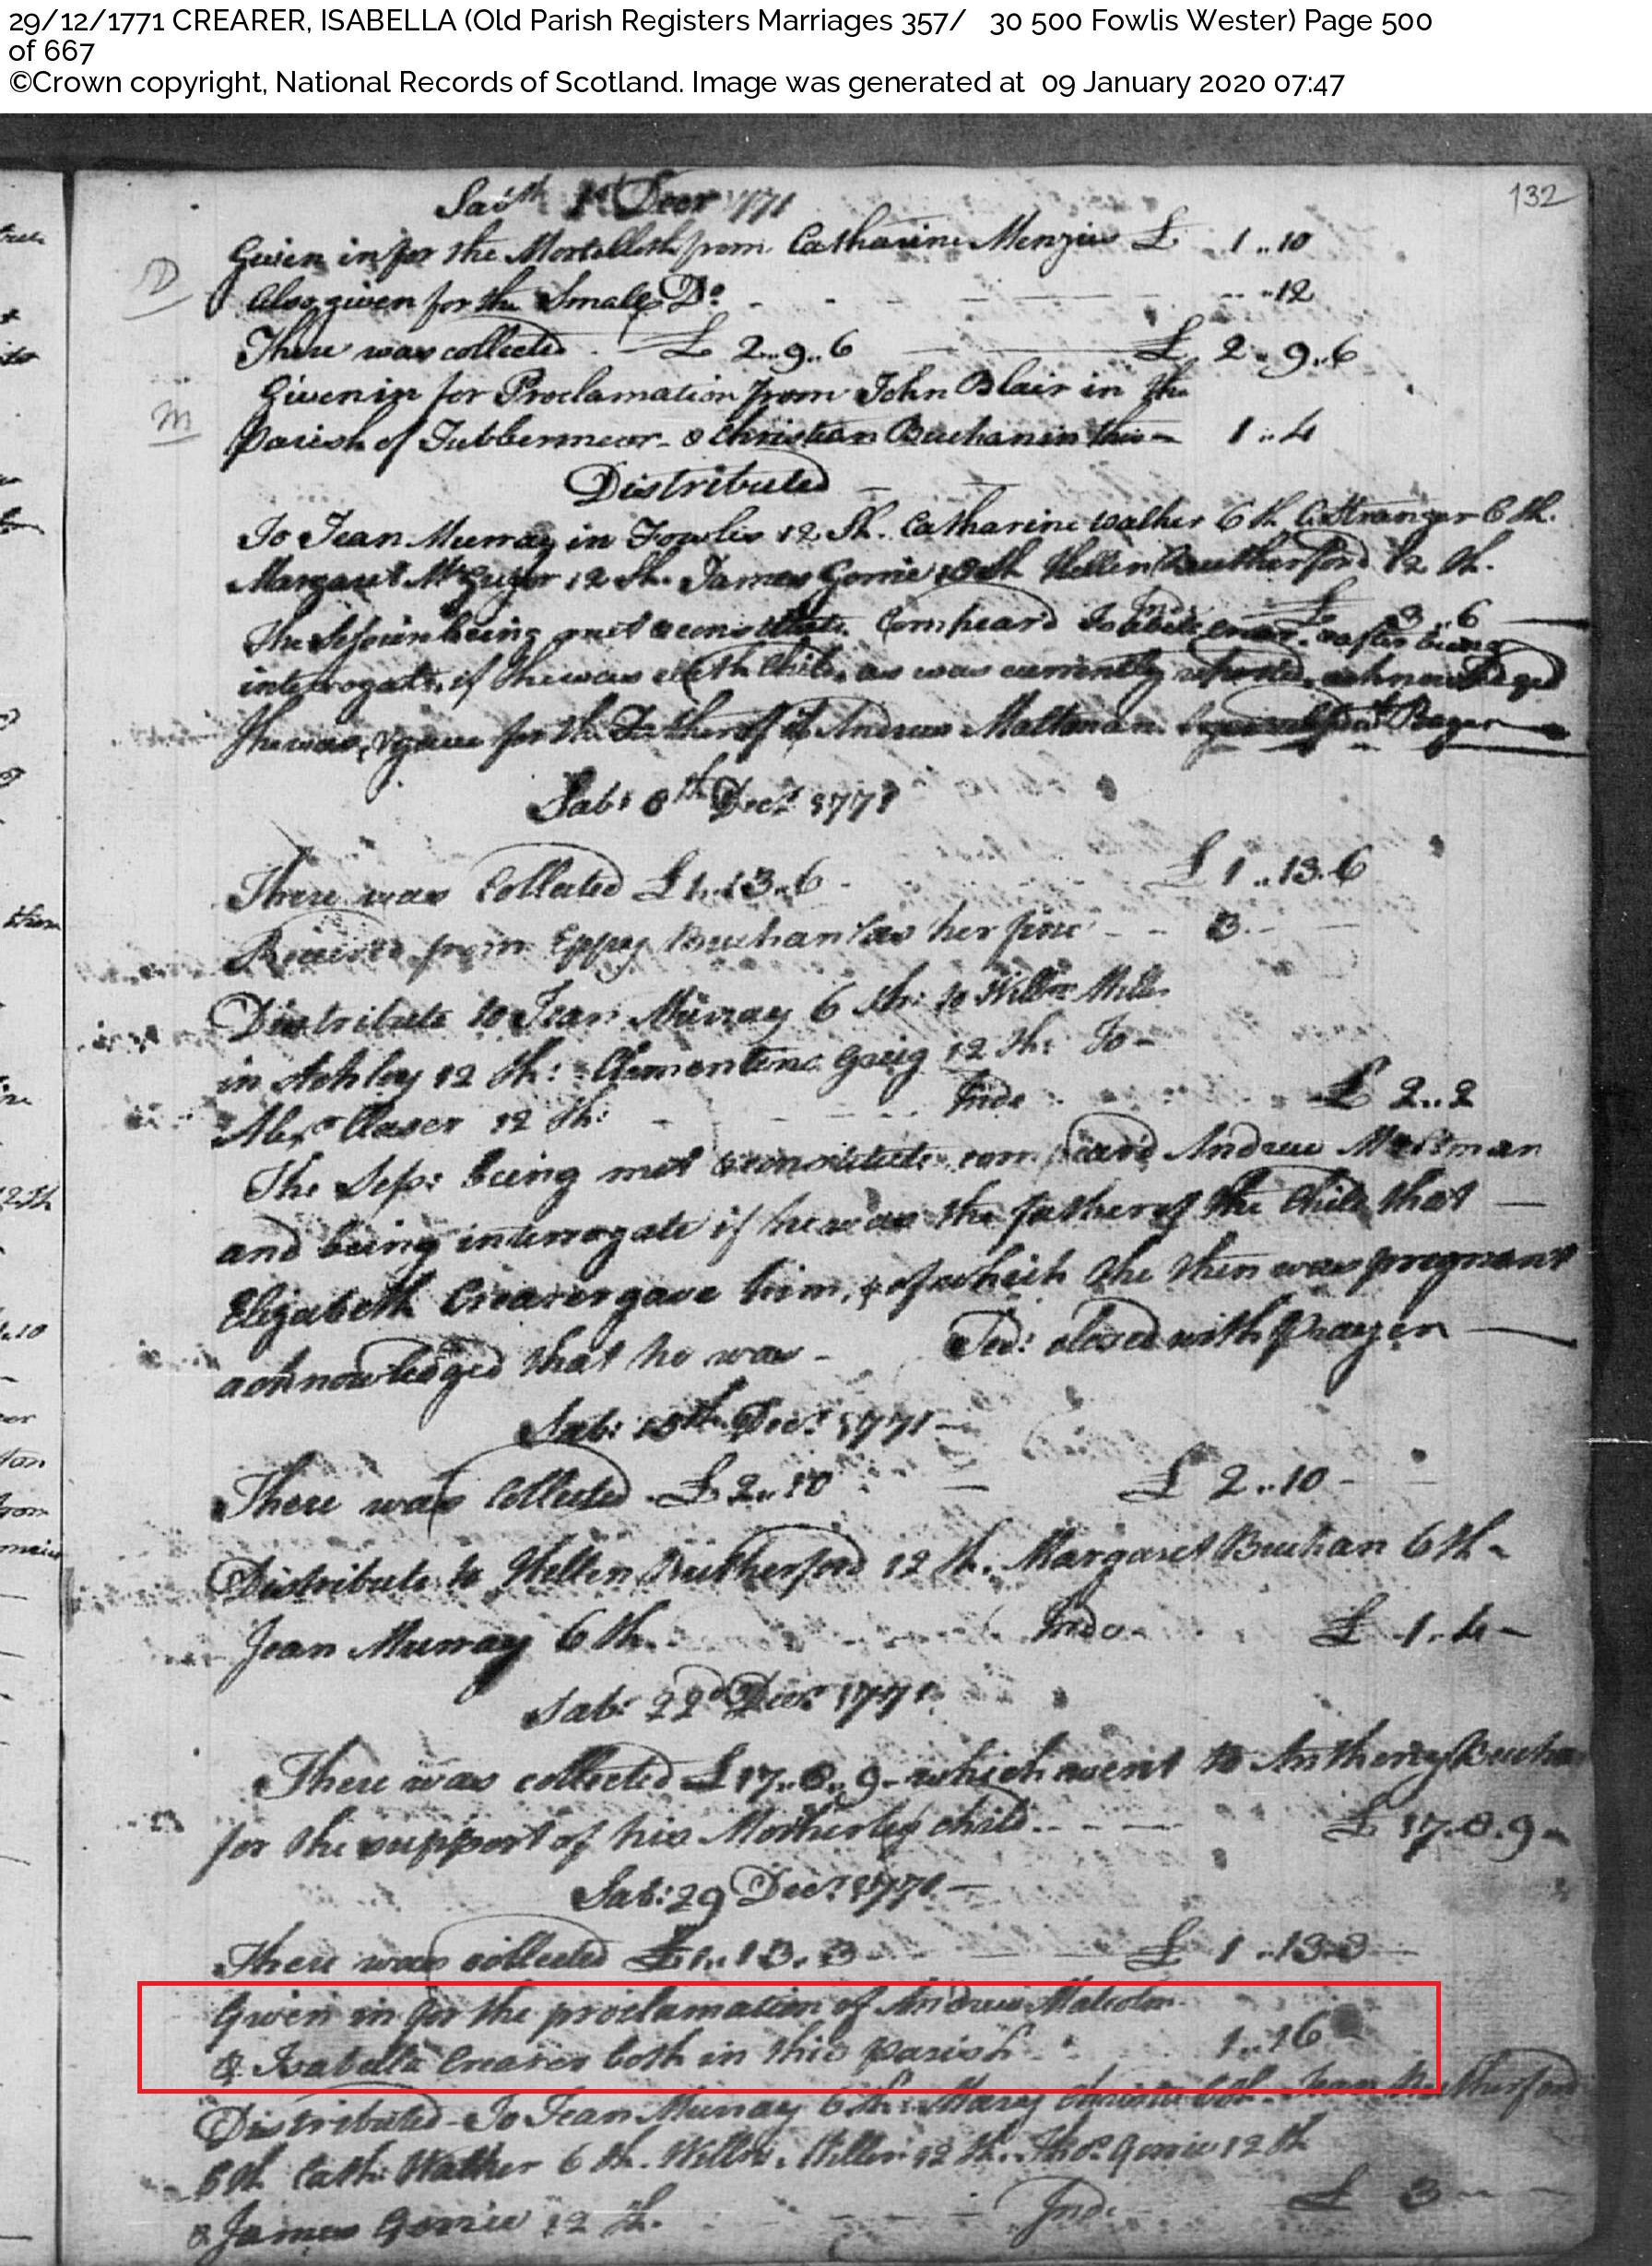 29/12/1771 CREARER, ISABELLA (Old Parish Registers Marriages 357/ 30 500 Fowlis Wester) Page 500
of 667
©Crown copyright, National Records of Scotland. Image was generated at 09 January 2020 07:47
132
Decr 1771
Given in for the Mortcloth from Catharine Menzies £ 1..10
D
Also given for the Small Do 12
There was collected £ 2..9..6 £ 2..9..6
Given in for Proclamation from John Blair in the
m
Parish of & Christian Buchan in this 1..4
Distributed
To Jean Murray in Fowlis 12 Sh. Catharine Walker 6 sh. a Stranger 6 sh.
Margaret 12 Sh. James Gorrie sh Hellen Rutherford 12 sh.
Inde £ 3..6
The Session being met & constitute. Compeard & after being
interrogate, if she was with Child, as was currently reported, acknowledged
she was, & gave for the Father of it Andrew Maltman
Sab: 8th Decr 1771
There was Collected £1..13..6 £ 1..13.6
Received from Eppy Buchan as her fine 3
Distribute to Jean Murray 6 sh: to Willm Miller
in 12 sh: Clementine Greig 12 sh: To
Alexr 12 sh: Inde £ 2..2
The Sess: being met & constitute, compeard Andrew Maltman
and being interrogate if he was the father of the Child that
Elizabeth Crearer gave him, & of which She then was pregnant
acknowledged that he was - Sed: closed with Prayer
Sab: 15th Decr 1771
There was Collected £2..10 £ 2..10
Distribute to Hellen Rutherford 12 sh. Margaret Buchan 6 sh
Jean Murray 6 sh. Inde £ 1..4
Sab: 22d Decr 1771
There was collected £17..8..9 which went to Anthony
for the support of his Motherless child £ 17.8.9
Sab: 29 Decr 1771
There was collected £1..13..3 £ 1..13..3
Given in for the proclamation of Andrew Malcolm
& Isabella Crearer both in this Parish 1..16
Distributed To Jean Murray 6 sh. Mary Christie 6 sh. Jean Rutherford
6 sh Cath: Walker 6 sh. Willm Miller 12 sh. Thos Gorrie 12 sh
& James Gorrie 12 sh. Inde £ 3